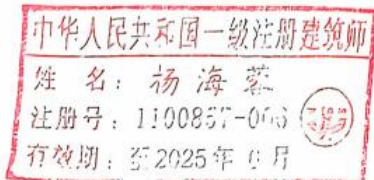 中华人民共和国一级注册建筑师
姓 名：杨海
注册号：1100857-006
有效期：至2025年 月